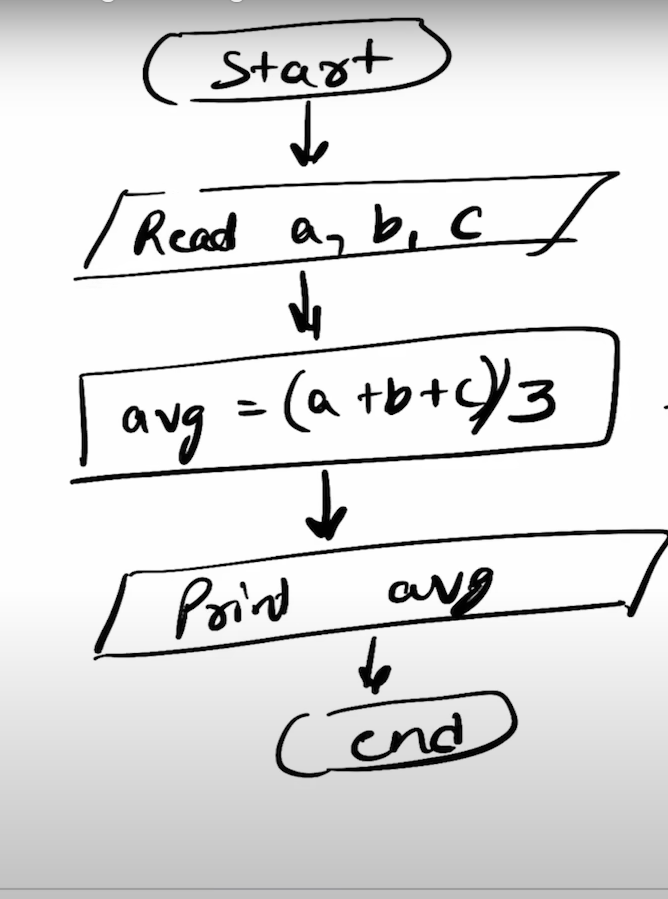 Start
Read a, b, c
avg = (a+b+c)/3
Print avg
end